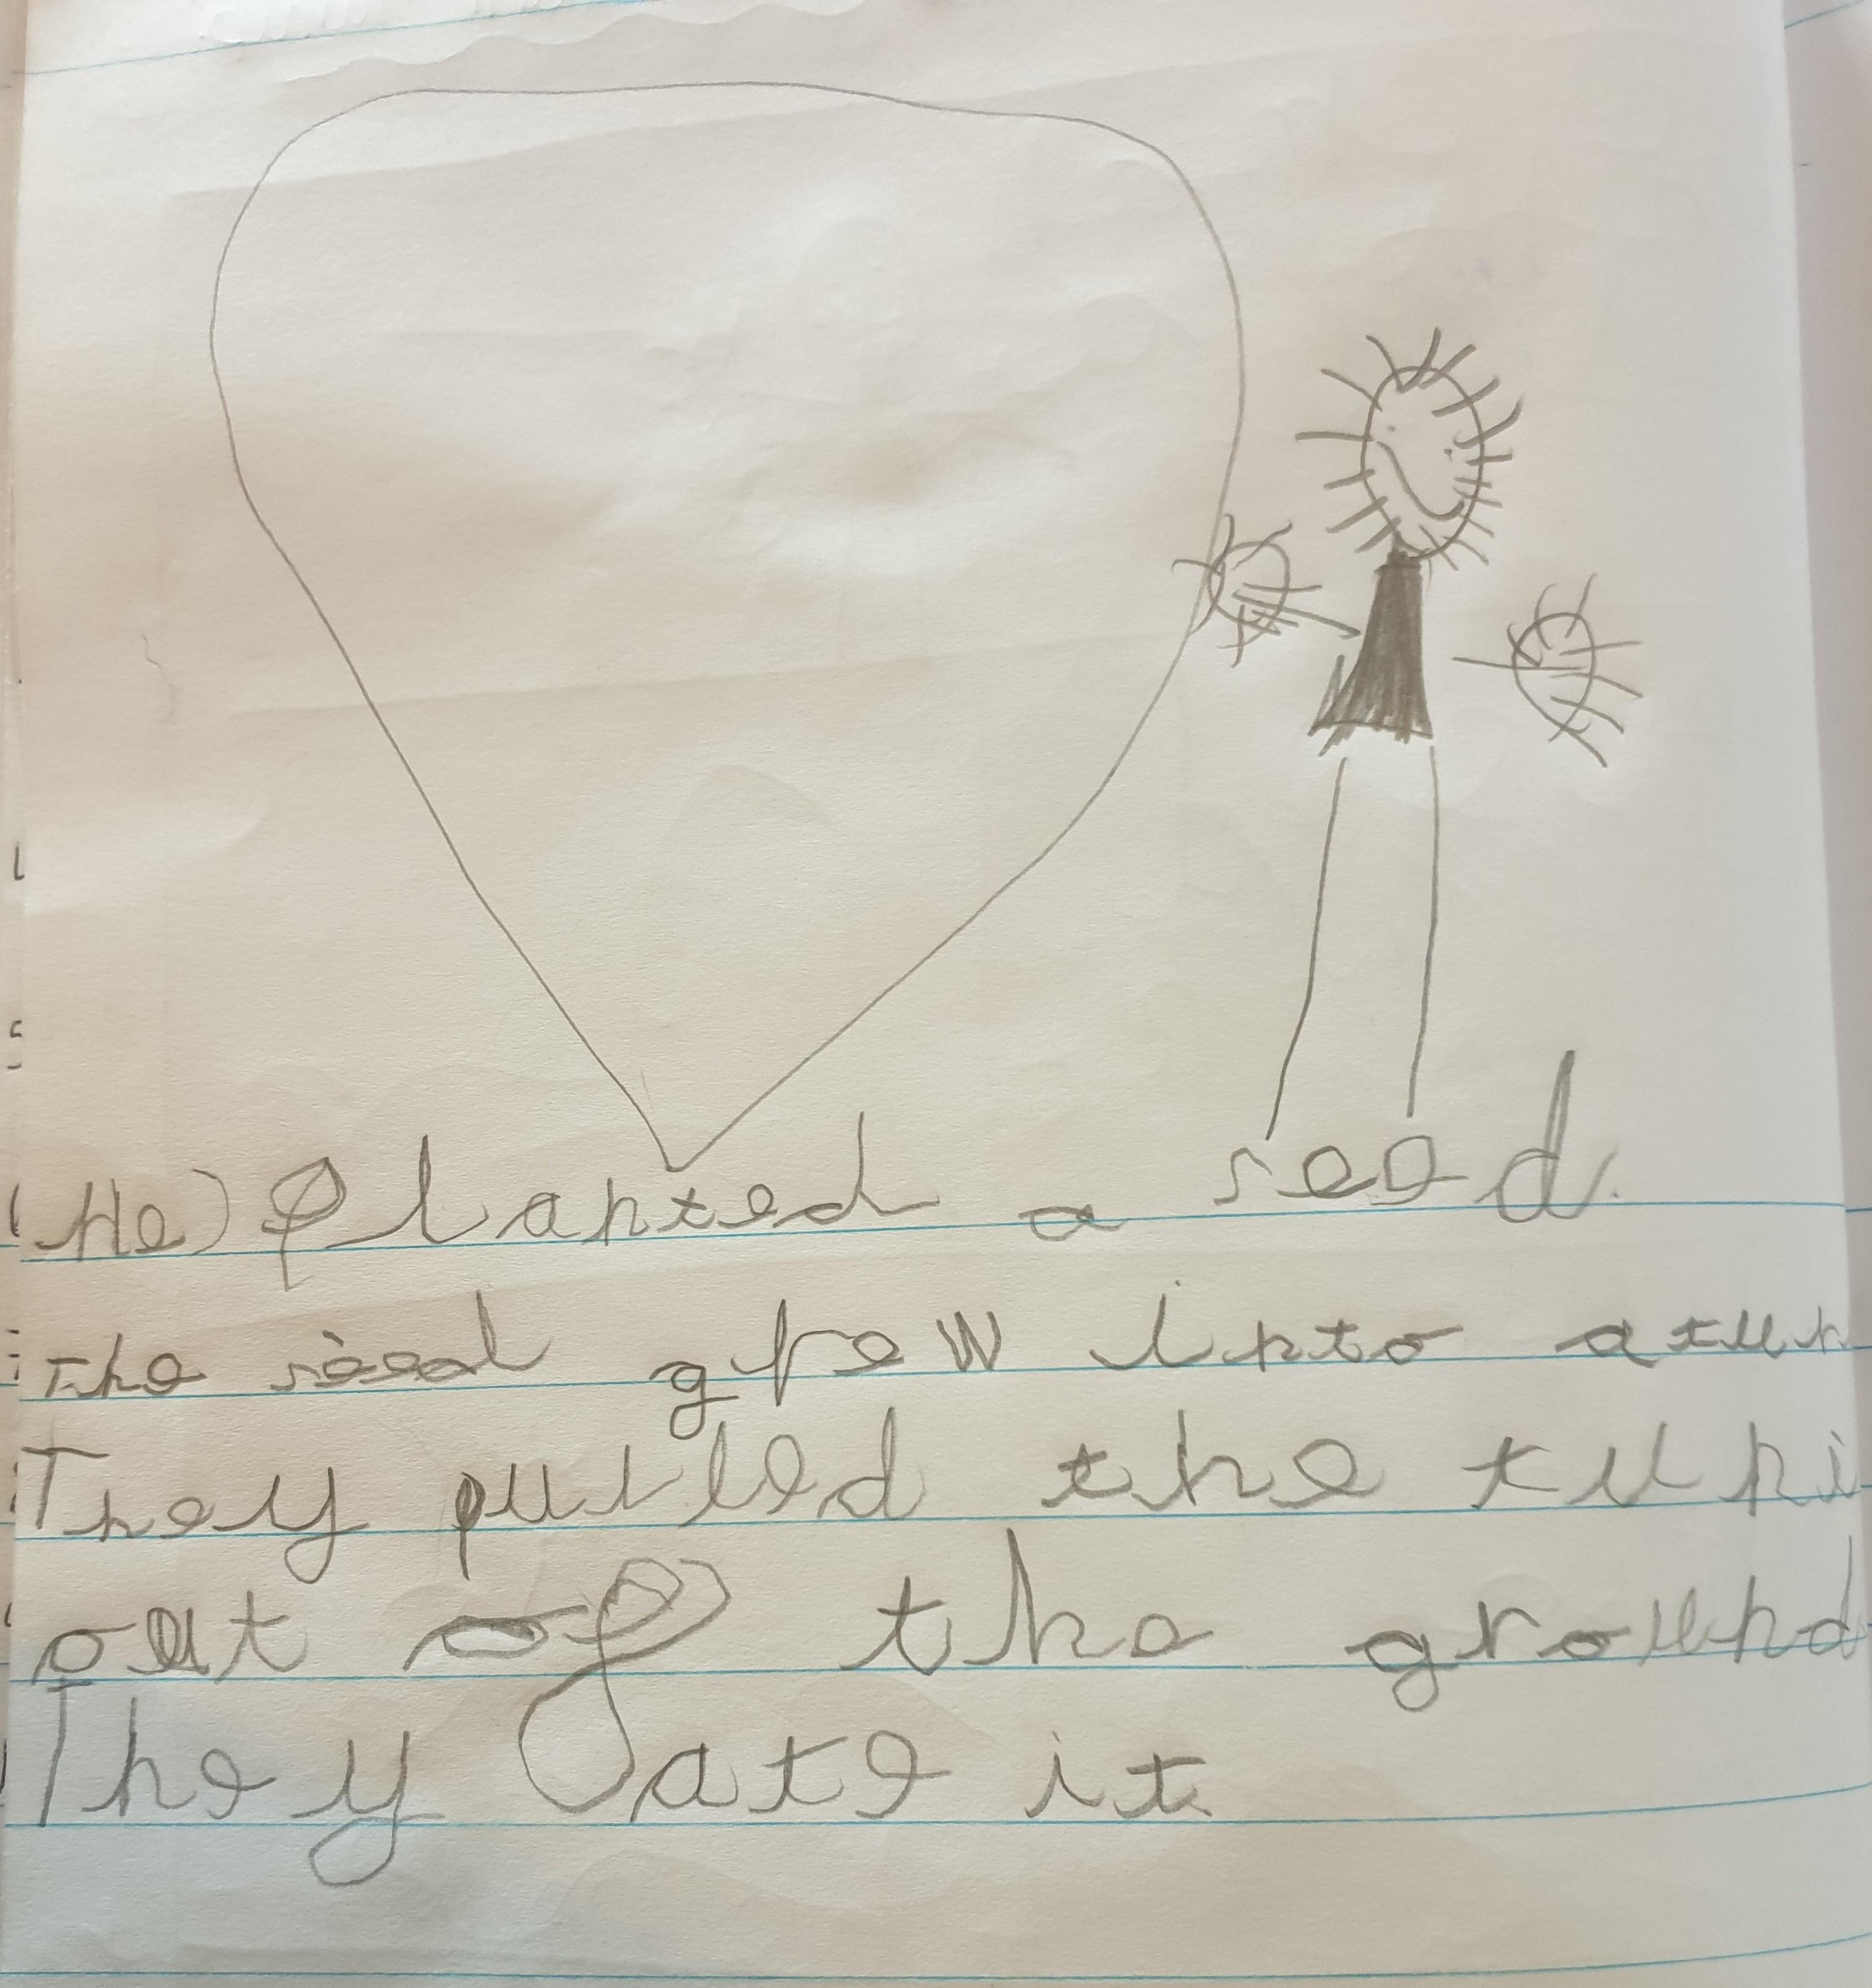 (He) planted a seed.
The seed grew into a turn
They pulled the tuni
out of the ground
They ate it